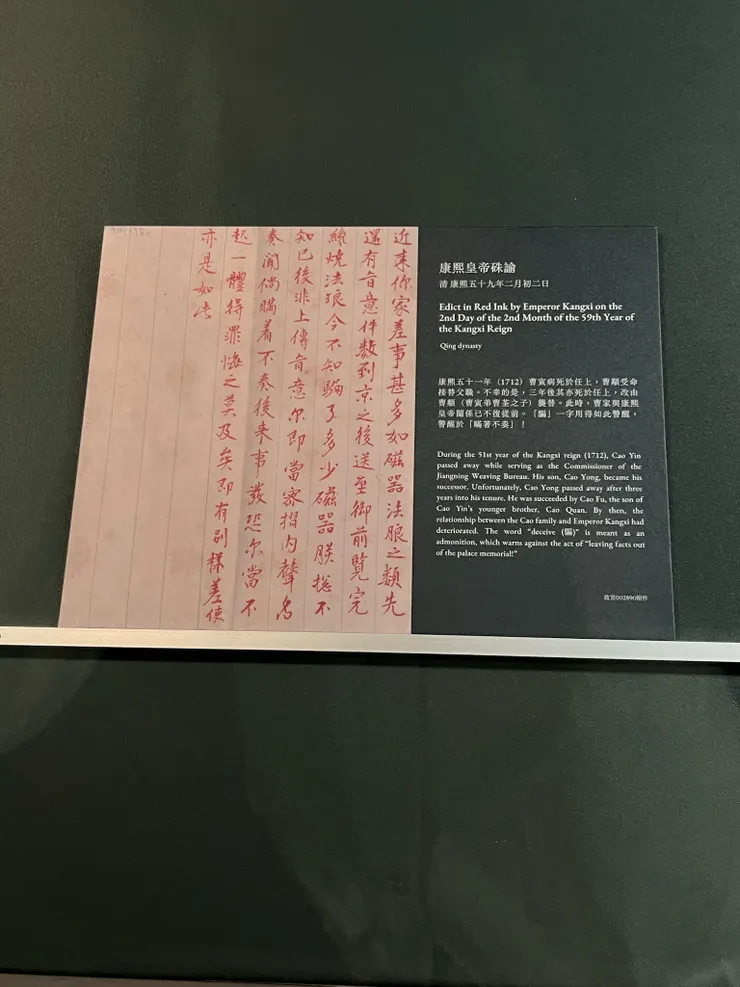 近来你家差事甚多如磁器法瑯之類先
還有旨意件数到京之後送至御前覽完
纔燒法琅今不知騙了多少磁器朕摠不
知已後非上傳旨意尔即當密摺内聲名
奏聞倘瞞着不奏後来事發恐尔當不
起一體得罪悔之莫及矣即有別樣差使
亦是如此
康熙皇帝硃諭
清 康熙五十九年二月初二日
Edict in Red Ink by Emperor Kangxi on the
2nd Day of the 2nd Month of the 59th Year of
the Kangxi Reign
Qing dynasty
康熙五十一年（1712）曹寅病死於任上，曹顒受命
接替父職。不幸的是，三年後其亦死於任上，改由
曹頫（曹寅弟曹荃之子）襲替。此時，曹家與康熙
皇帝關係已不復從前。「騙」一字用得如此警醒，
警醒於「瞞著不奏」！
During the 51st year of the Kangxi reign (1712), Cao Yin
passed away while serving as the Commissioner of the
Jiangning Weaving Bureau. His son, Cao Yong, became his
successor. Unfortunately, Cao Yong passed away after three
years into his tenure. He was succeeded by Cao Fu, the son of
Cao Yin's younger brother, Cao Quan. By then, the
relationship between the Cao family and Emperor Kangxi had
deteriorated. The word "deceive (騙)" is meant as an
admonition, which warns against the act of "leaving facts out
of the palace memorial!"
故宮002890附件